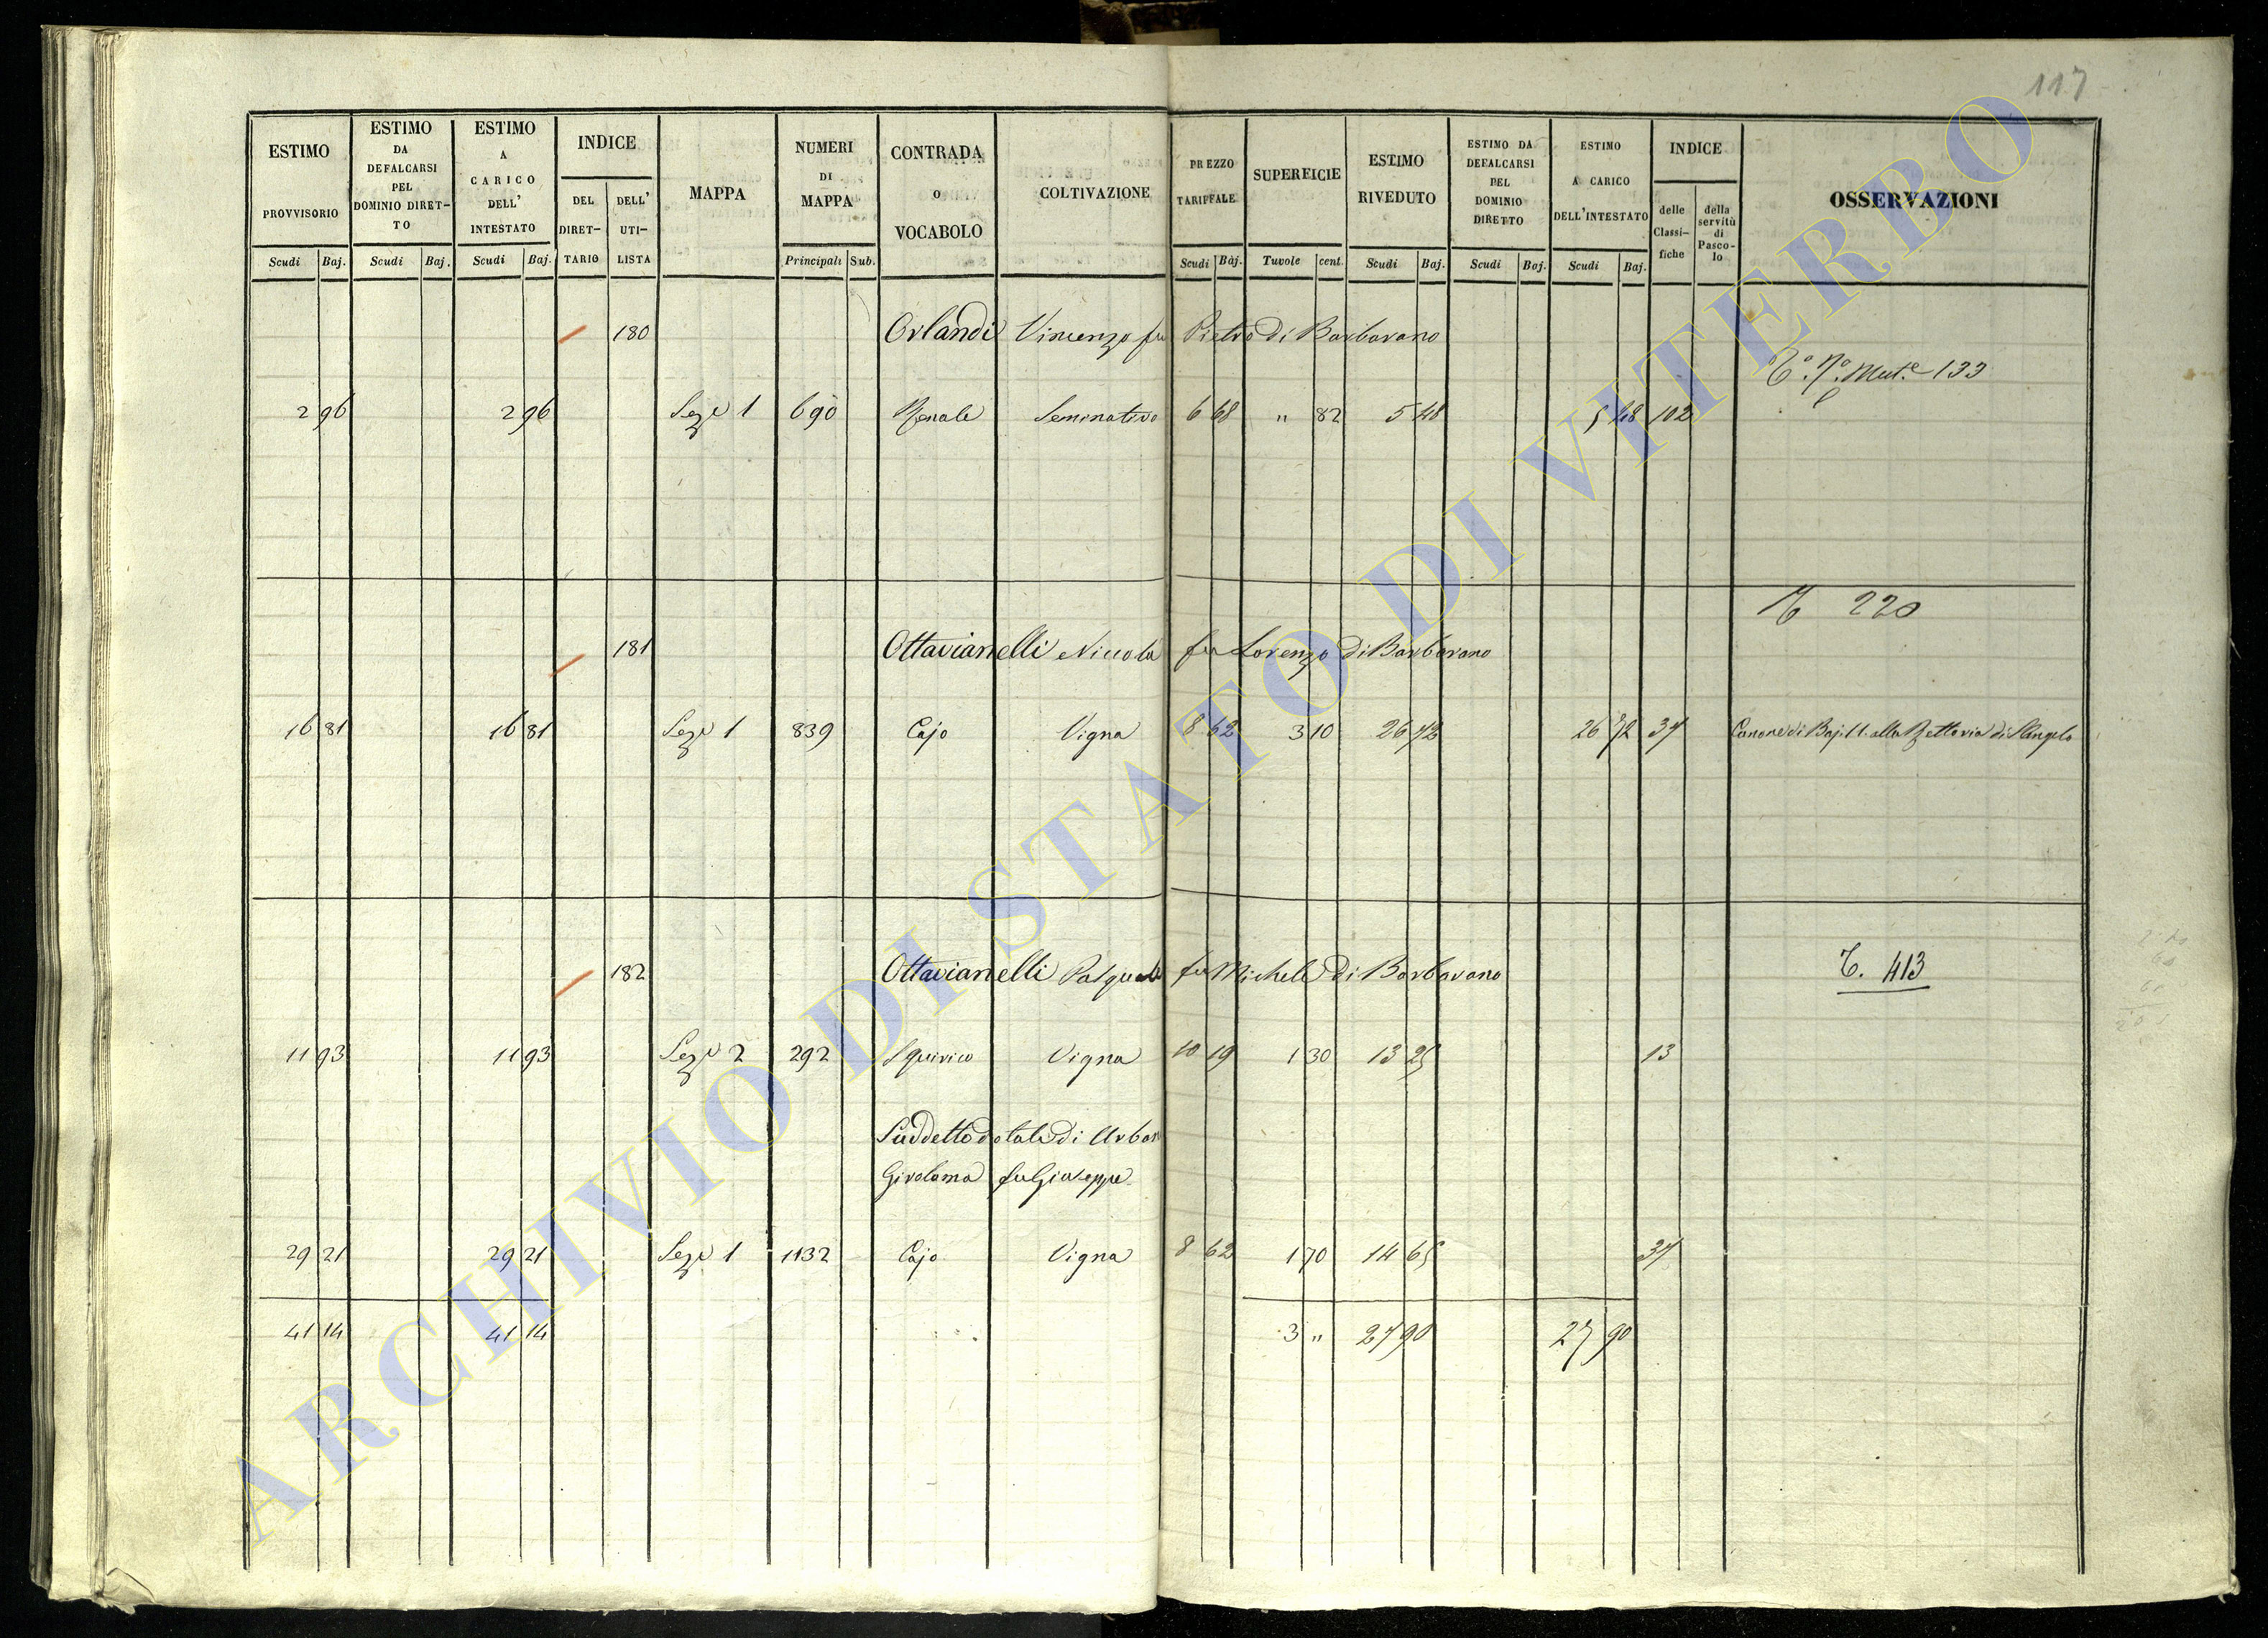 117
ESTIMO PROVVISORIO | ESTIMO DA DEFALCARSI PEL DOMINIO DIRETTO | ESTIMO A CARICO DELL' INTESTATO | INDICE | MAPPA | NUMERI DI MAPPA | CONTRADA O VOCABOLO | COLTIVAZIONE | PREZZO TARIFFALE | SUPEREICIE | ESTIMO RIVEDUTO | ESTIMO DA DEFALCARSI PEL DOMINIO DIRETTO | ESTIMO A CARICO DELL'INTESTATO | INDICE | OSSERVAZIONI
DEL DIRETTARIO | DELL' UTILISTA | delle Classifiche | della servitù di Pascolo
Scudi Baj. | Scudi Baj. | Scudi Baj. | Principali Sub. | Scudi Baj. | Tuvole cent. | Scudi Baj. | Scudi Baj. | Scudi Baj.
180 Orlandi Vincenzo fu Pietro di Barbarano
133
2 96 2 96 Seze 1 690 Seminativo 6 68 " 82 5 48 5 48 102
220
181 Ottavianelli Niccola fu Lorenzo di Barbarano
16 81 16 81 Seze 1 839 Cajo Vigna 8 62 3 10 26 72 26 72 37 Canone di Baj. 11. alla Rettoria di S Angelo
182 Ottavianelli Pasquale fu Michele di Barbarano T. 413
11 93 11 93 Sezе 2 292 Squirico Vigna 10 19 1 30 13 25 13
Suddetto dotale di Urbani
Girolama fu Giuseppe
29 21 29 21 Seze 1 1132 Cajo Vigna 8 62 1 70 14 65 37
41 14 41 14 3 " 27 90 27 90
ARCHIVIO DI STATO DI VITERBO